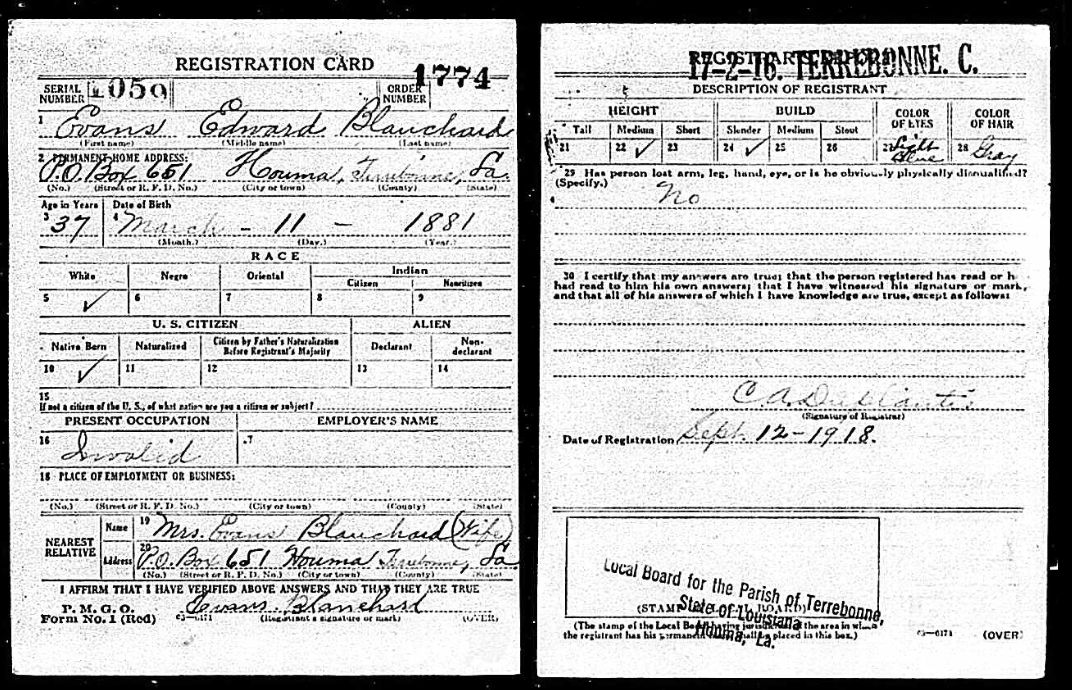 REGISTRATION CARD
SERIAL NUMBER 1059 ORDER NUMBER 1774
1 Evans Edward Blanchard
(First name) (Middle name) (Last name)
2 PERMANENT HOME ADDRESS:
P.O. Box 651 Houma, Terrebonne, La.
(No.) (Street or R. F. D. No.) (City or town) (County) (State)
Age in Years Date of Birth
3 37 4 March - 11 - 1881
(Month.) (Day.) (Year.)
RACE
White Negro Oriental Indian
Citizen Noncitizen
5 ✓ 6 7 8 9
U. S. CITIZEN ALIEN
Native Born Naturalized Citizen by Father's Naturalization Before Registrant's Majority Declarant Non-declarant
10 ✓ 11 12 13 14
15
If not a citizen of the U. S., of what nation are you a citizen or subject?
PRESENT OCCUPATION EMPLOYER'S NAME
16 Invalid 17
18 PLACE OF EMPLOYMENT OR BUSINESS:
(No.) (Street or R. F. D. No.) (City or town) (County) (State)
NEAREST RELATIVE Name 19 Mrs. Evans Blanchard (Wife)
Address 20 P.O. Box 651 Houma Terrebonne, La
(No.) (Street or R. F. D. No.) (City or town) (County) (State)
I AFFIRM THAT I HAVE VERIFIED ABOVE ANSWERS AND THAT THEY ARE TRUE
P. M. G. O.
Form No. 1 (Red) 03—6171 Evans Blanchard
(Registrant's signature or mark) (OVER)
REGISTRAR'S REPORT
17-2-16. TERREBONNE. C.
DESCRIPTION OF REGISTRANT
HEIGHT BUILD COLOR OF EYES COLOR OF HAIR
Tall Medium Short Slender Medium Stout
21 22 ✓ 23 24 ✓ 25 26 27 Light Blue 28 Gray
29 Has person lost arm, leg, hand, eye, or is he obviously physically disqualified?
(Specify.) No
30 I certify that my answers are true; that the person registered has read or h
had read to him his own answers; that I have witnessed his signature or mark,
and that all of his answers of which I have knowledge are true, except as follows:
C A
(Signature of Registrar)
Date of Registration Sept. 12-1918.
Local Board for the Parish of Terrebonne,
State of Louisiana
Houma, La.
(STAMP OF LOCAL BOARD)
(The stamp of the Local Board having jurisdiction of the area in which
the registrant has his permanent home shall be placed in this box.)
03—6171 (OVER)